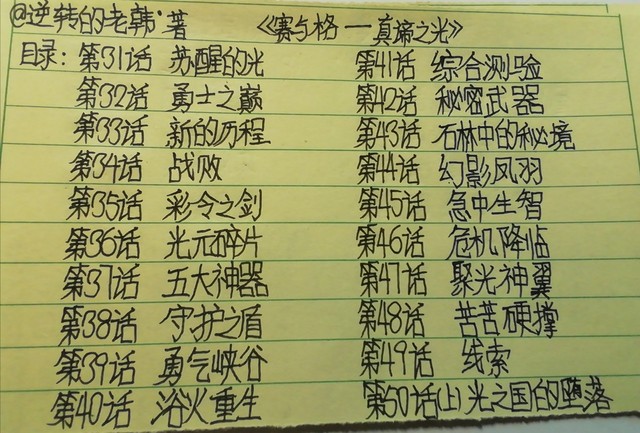 @逆转的老韩·著 《赛与格一真谛之光》
目录:第31话 苏醒的光 第41话 综合测验
第32话 勇士之巅 第42话 秘密武器
第33话 新的历程 第43话 石林中的秘境
第34话 战败 第44话 幻影凤羽
第35话 彩令之剑 第45话 急中生智
第36话 光元碎片 第46话 危机降临
第37话 五大神器 第47话 聚光神翼
第38话 守护之盾 第48话 苦苦硬撑
第39话 勇气峡谷 第49话 线索
第40话 浴火重生 第50话(上)光之国的堕落